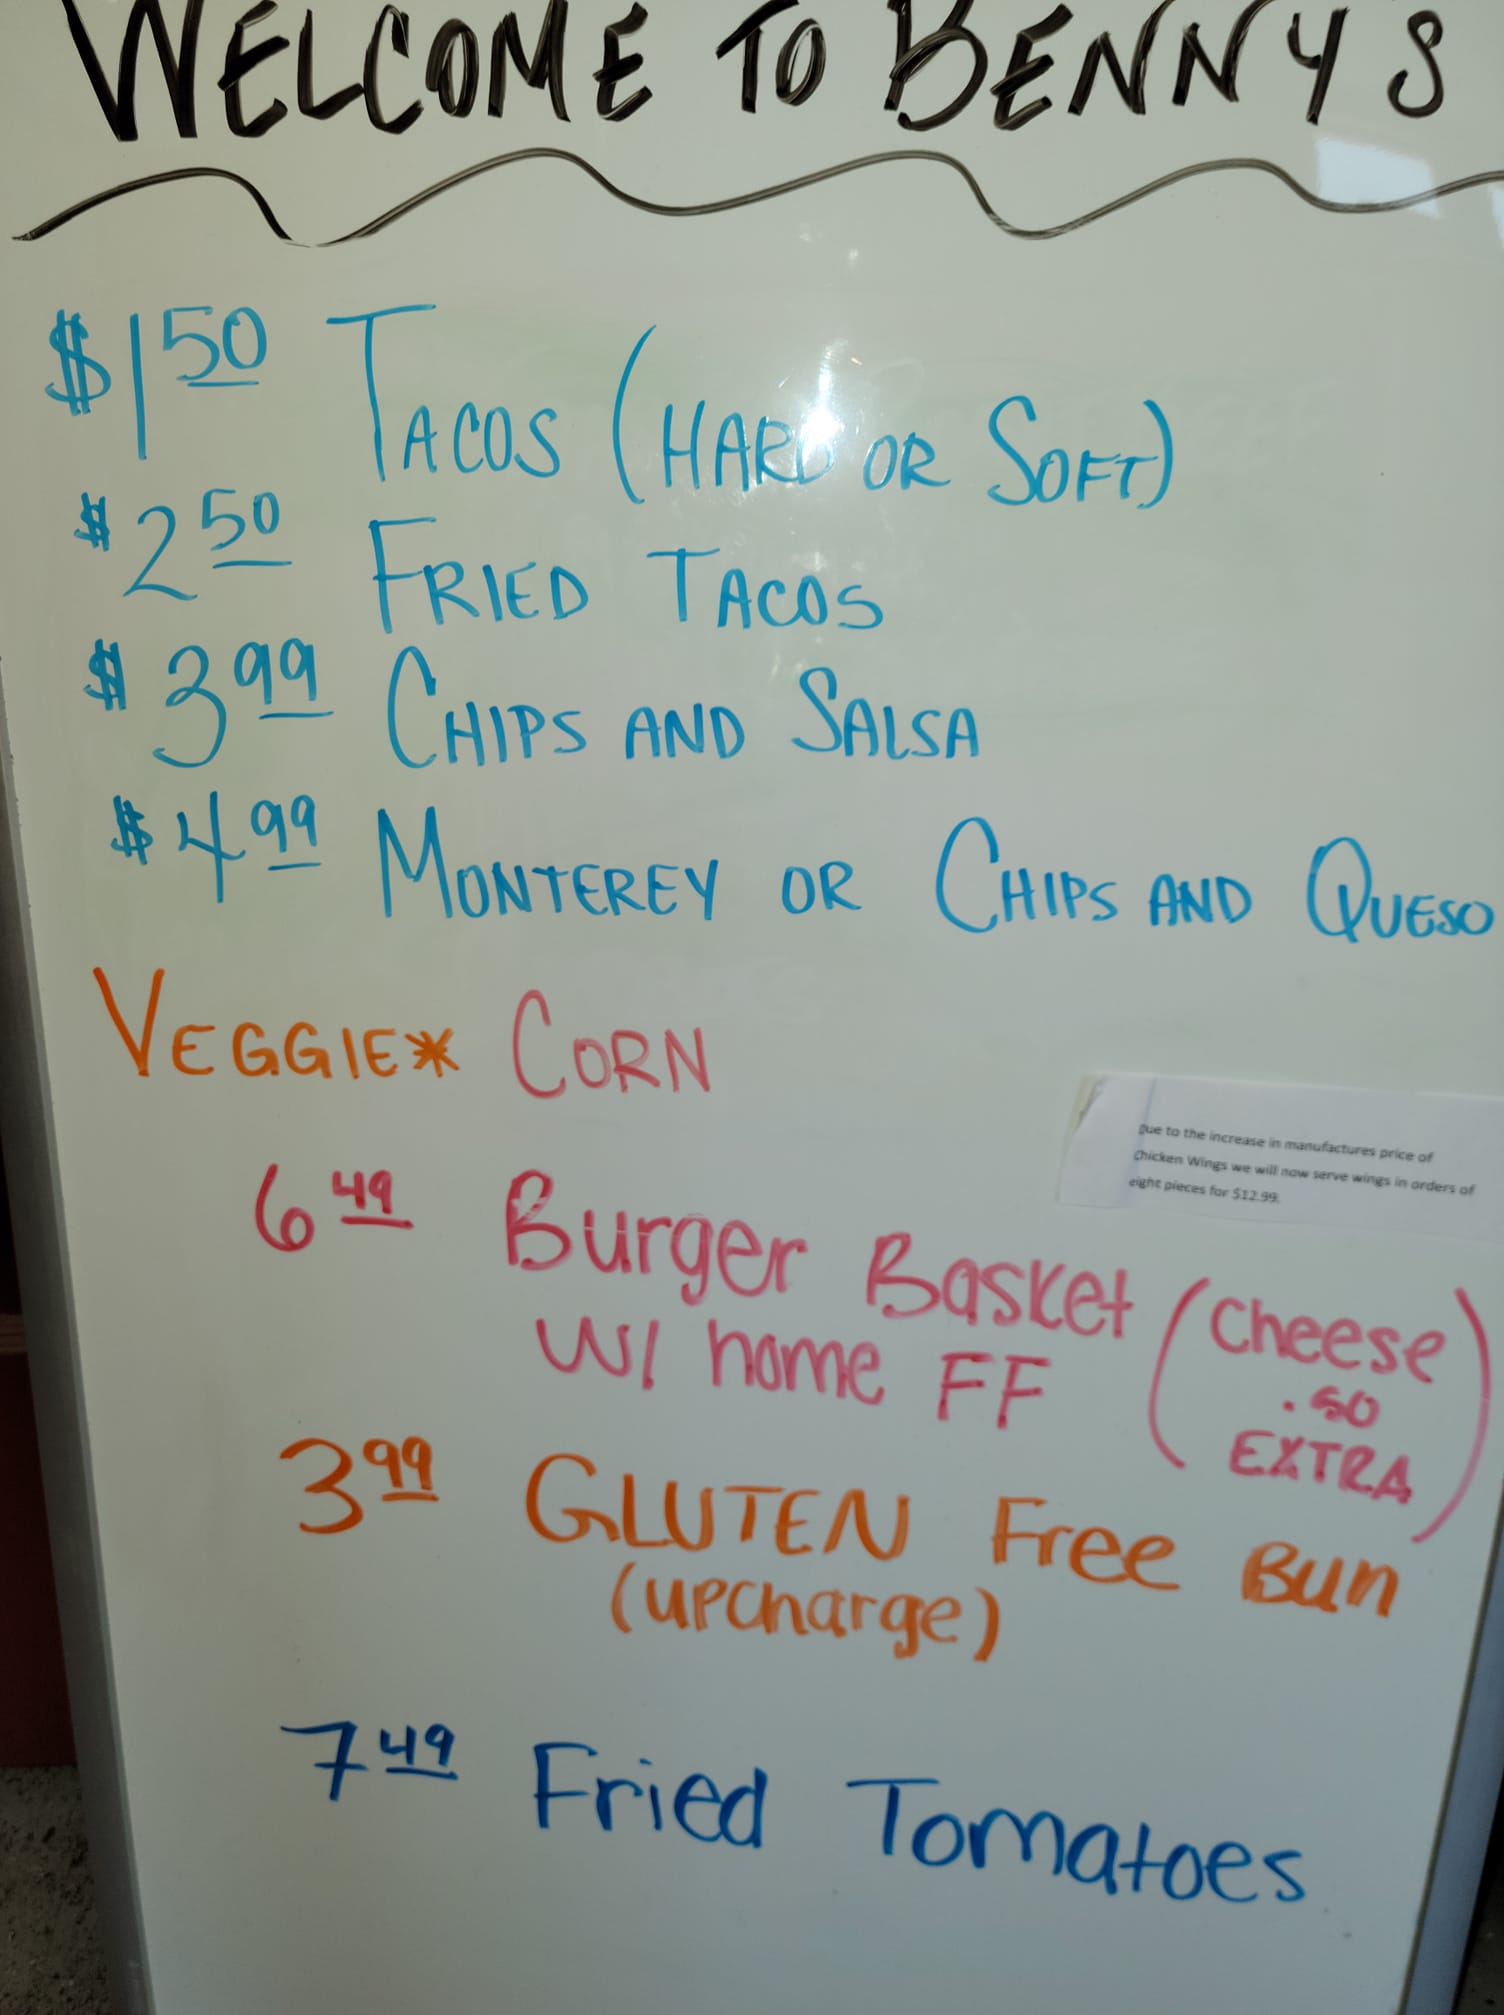 WELCOME TO BENNYS
$1 50 TACOS (HARD OR SOFT)
$2 50 FRIED TACOS
$3 99 CHIPS AND SALSA
$4 99 MONTEREY OR CHIPS AND QUESO
VEGGIE* CORN
Due to the increase in manufactures price of
Chicken Wings we will now serve wings in orders of
eight pieces for $12.99.
6 49 Burger Basket (Cheese
w/ home FF .50
EXTRA)
3 99 GLUTEN Free Bun
(upcharge)
7 49 Fried Tomatoes